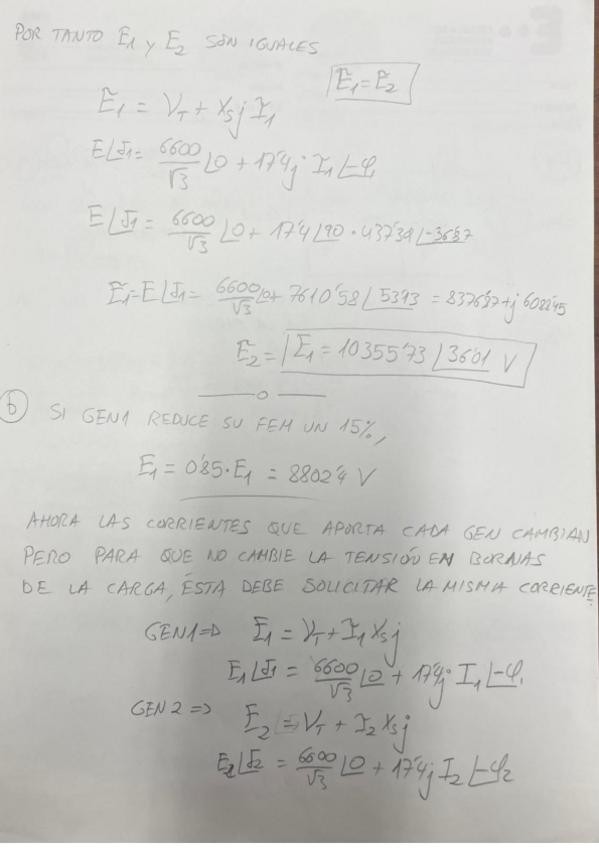 POR TANTO E1 y E2 SON IGUALES
Ẽ1 = Ẽ2
Ẽ1 = VT + Xs j Ĩ1
E∠δ1 = 6600/√3 ∠0 + 17'4j · I1∠-φ1
E∠δ1 = 6600/√3 ∠0 + 17'4∠90 · 437'39∠-36'87
Ẽ1 = E∠δ1 = 6600/√3 ∠0 + 7610'58∠53'13 = 8376'87 + j 6088'45
Ẽ2 = Ẽ1 = 10355'73 ∠36'01 V
b SI GEN1 REDUCE SU FEM UN 15%,
E1 = 0'85·E1 = 8802'4 V
AHORA LAS CORRIENTES QUE APORTA CADA GEN CAMBIAN
PERO PARA QUE NO CAMBIE LA TENSIÓN EN BORNAS
DE LA CARGA, ÉSTA DEBE SOLICITAR LA MISMA CORRIENTE
GEN1 => Ẽ1 = VT + Ĩ1 Xs j
E1∠δ1 = 6600/√3 ∠0 + 17'4j · I1∠-φ1
GEN2 => Ẽ2 = VT + Ĩ2 Xs j
E2∠δ2 = 6600/√3 ∠0 + 17'4j I2∠-φ2